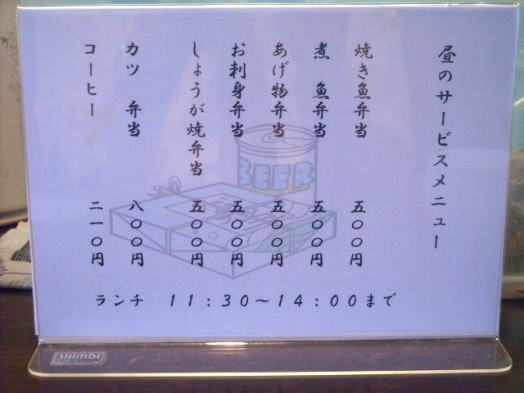 昼のサービスメニュー
焼き魚弁当 五〇〇円
煮 魚弁当 五〇〇円
あげ物弁当 五〇〇円
お刺身弁当 五〇〇円
しょうが焼弁当 五〇〇円
カツ 弁当 八〇〇円
コーヒー 二一〇円
BEER
ランチ 11:30～14:00まで